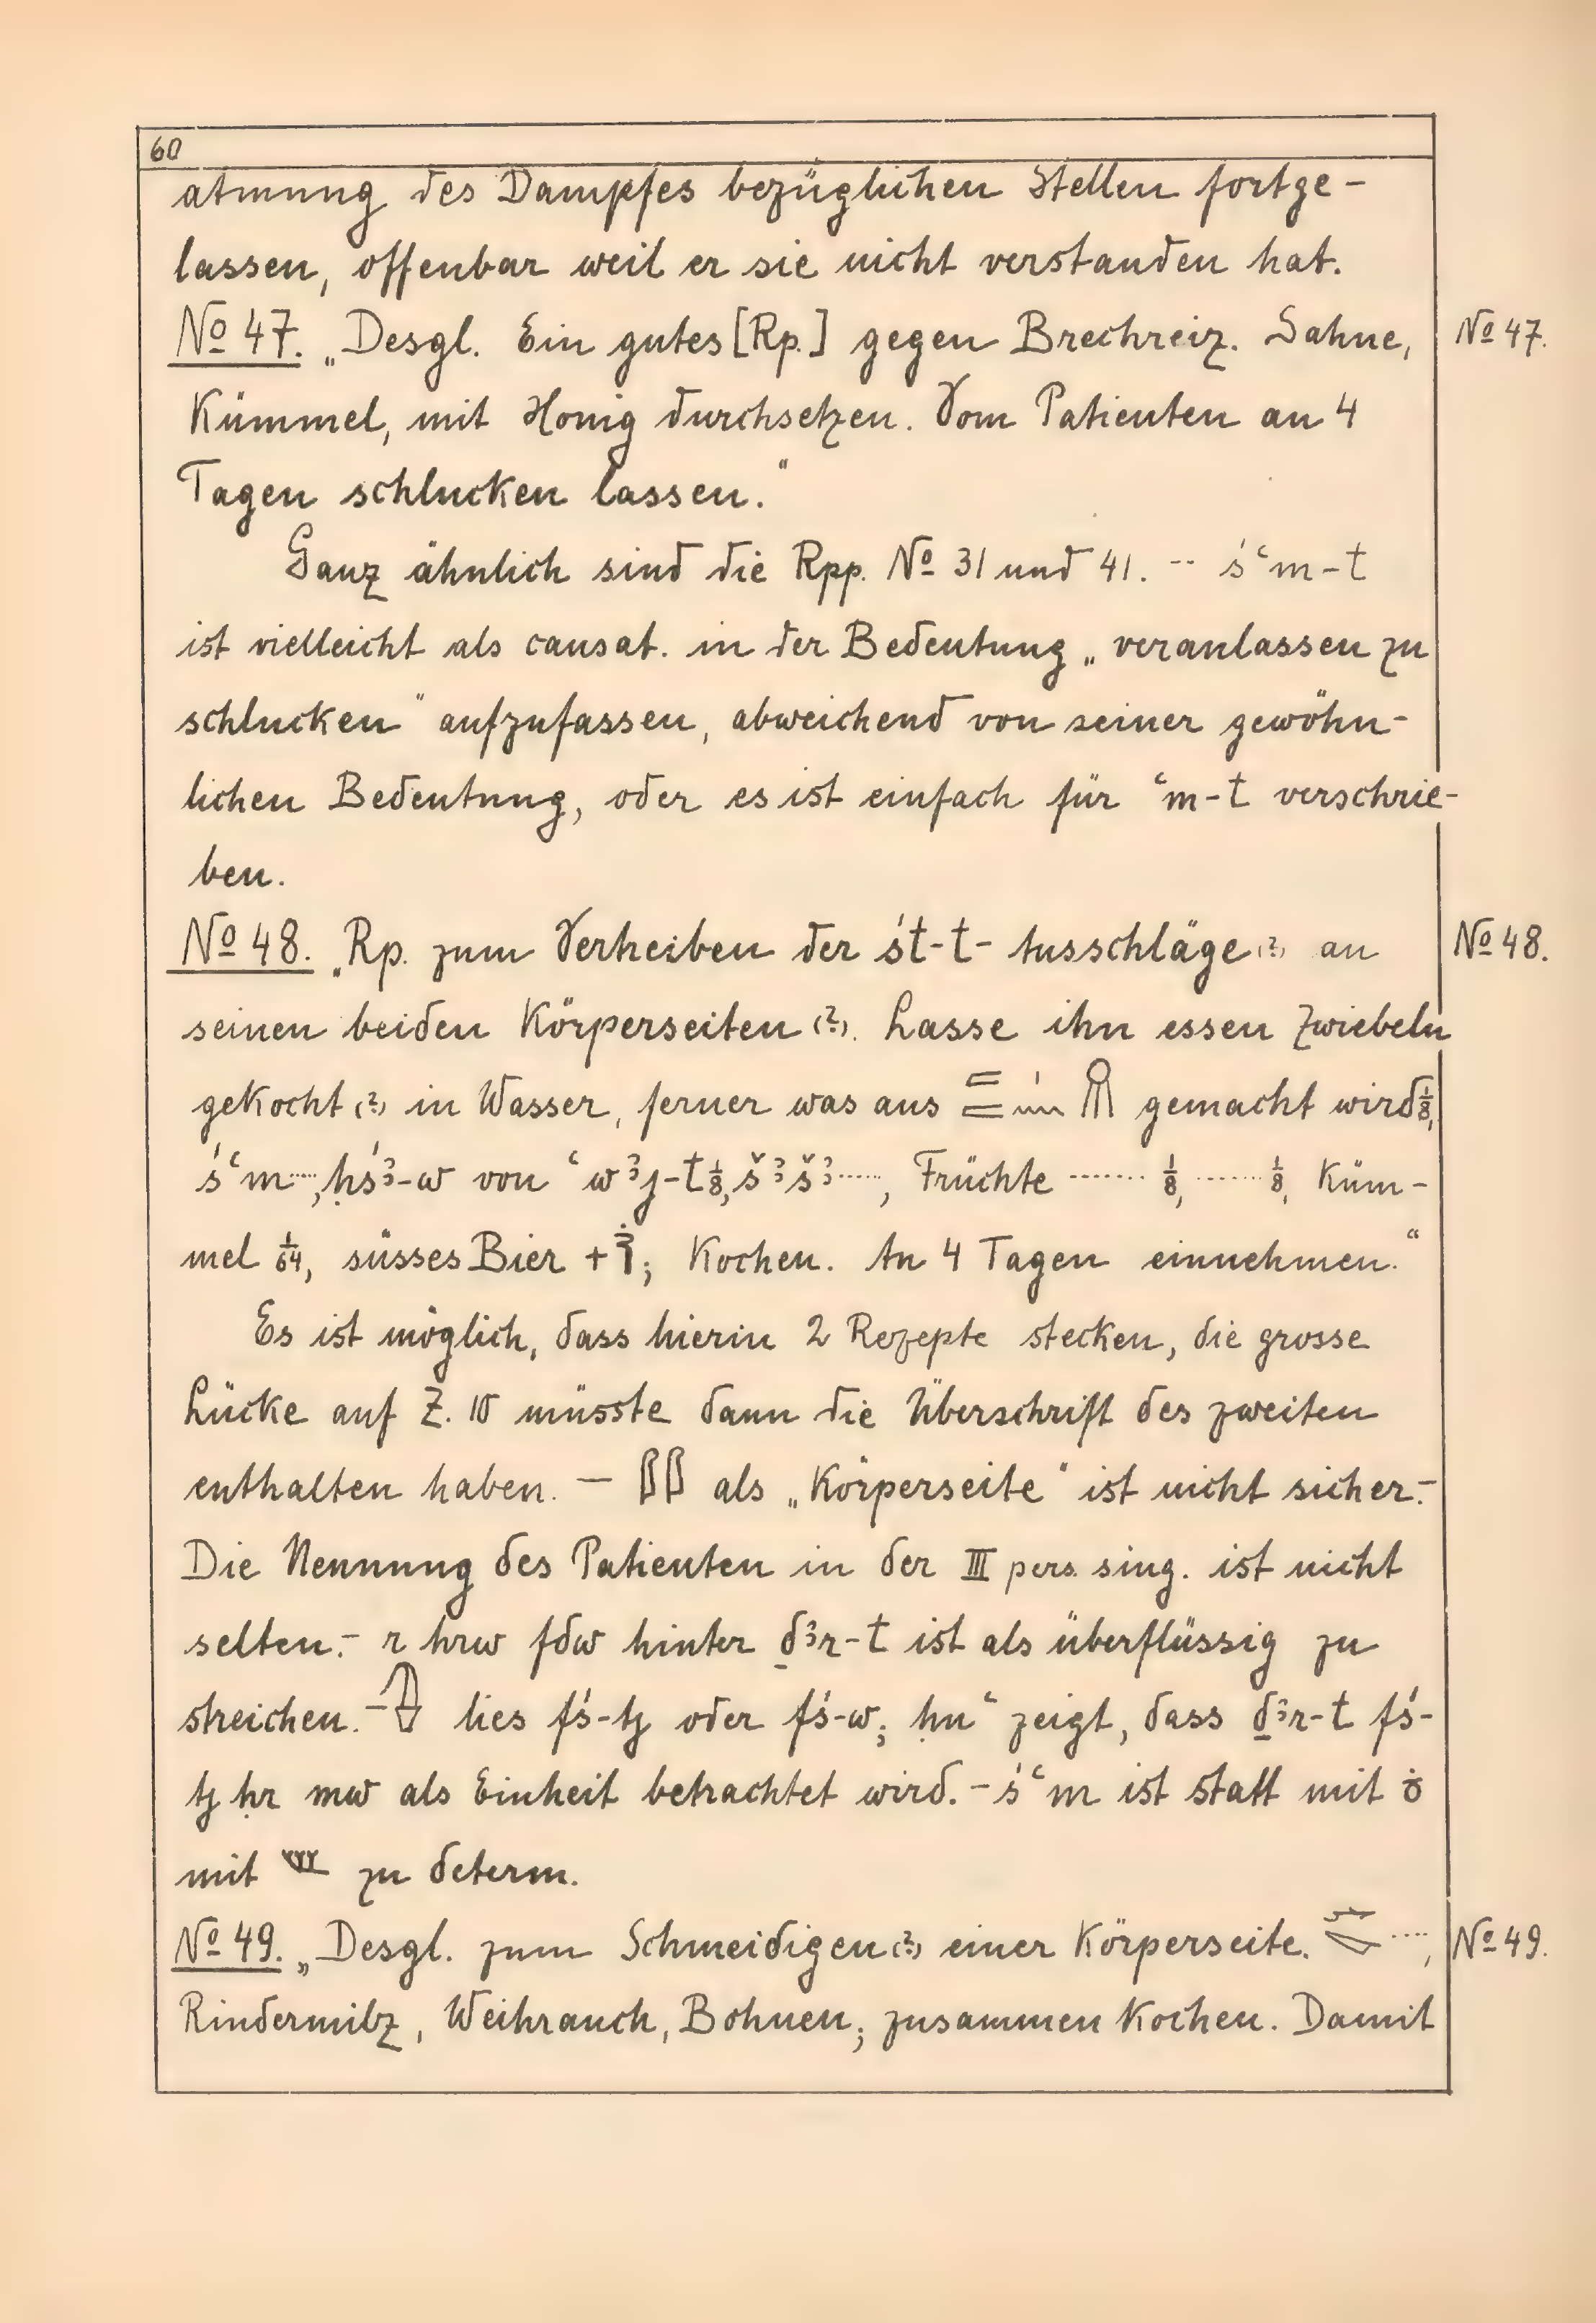 60
atmung des Dampfes bezüglichen Stellen fortge-
lassen, offenbar weil er sie nicht verstanden hat.
No 47. „Desgl. Ein gutes [Rp.] gegen Brechreiz. Sahne, No 47.
Kümmel, mit Honig durchsetzen. Vom Patienten an 4
Tagen schlucken lassen.“
Ganz ähnlich sind die Rpp. No 31 und 41. -- śꜥm-t
ist vielleicht als causat. in der Bedeutung „veranlassen zu
schlucken“ aufzufassen, abweichend von seiner gewöhn-
lichen Bedeutung, oder es ist einfach für ꜥm-t verschrie-
ben.
No 48. „Rp. zum Vertreiben der śt-t- Ausschläge (?) an No 48.
seinen beiden Körperseiten (?). Lasse ihn essen Zwiebeln
gekocht (?) in Wasser, ferner was aus gemacht wird ⅛,
śꜥm ....., ḥśꜣ-w von ꜥwꜣj-t ⅛, šꜣšꜣ ....., Früchte ....... ⅛, ....... ⅛, Küm-
mel 1/64, süsses Bier + ; Kochen. An 4 Tagen einnehmen.“
Es ist möglich, dass hierin 2 Rezepte stecken, die grosse
Lücke auf Z. 10 müsste dann die Überschrift des zweiten
enthalten haben. — als „Körperseite“ ist nicht sicher. -
Die Nennung des Patienten in der III pers. sing. ist nicht
selten. - r hrw fdw hinter ḏꜣr-t ist als überflüssig zu
streichen. - lies fś-tj oder fś-w; ḥnꜥ zeigt, dass ḏꜣr-t fś-
tj ḥr mw als Einheit betrachtet wird. - śꜥm ist statt mit
mit zu determ.
No 49. „Desgl. zum Schmeidigen (?) einer Körperseite. ...., No 49.
Rindermilz, Weihrauch, Bohnen; zusammen Kochen. Damit